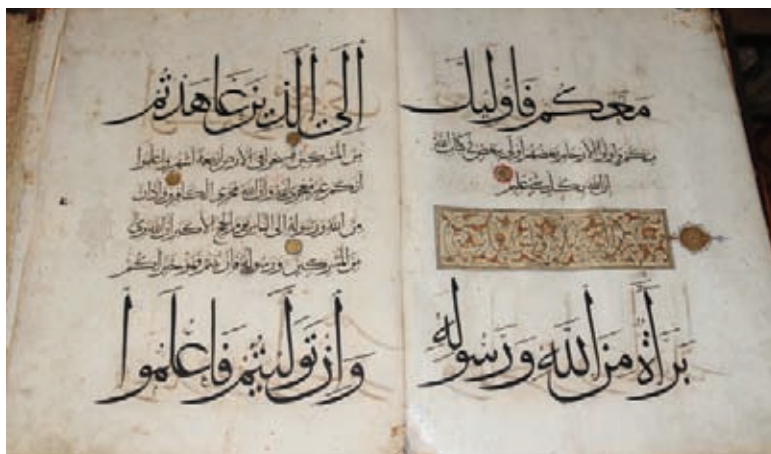 معكم فاوليك
منكم واولوا الارحام بعضهم اولى ببعض في كتاب الله
ان الله بكل شيء عليم
براة من الله ورسوله
الى الذين عاهدتم
من المشركين فسيحوا في الارض اربعة اشهر واعلموا
انكم غير معجزي الله وان الله مخزي الكافرين واذان
من الله ورسوله الى الناس يوم الحج الاكبر ان الله بري
من المشركين ورسوله فان تبتم فهو خير لكم
وان توليتم فاعلموا